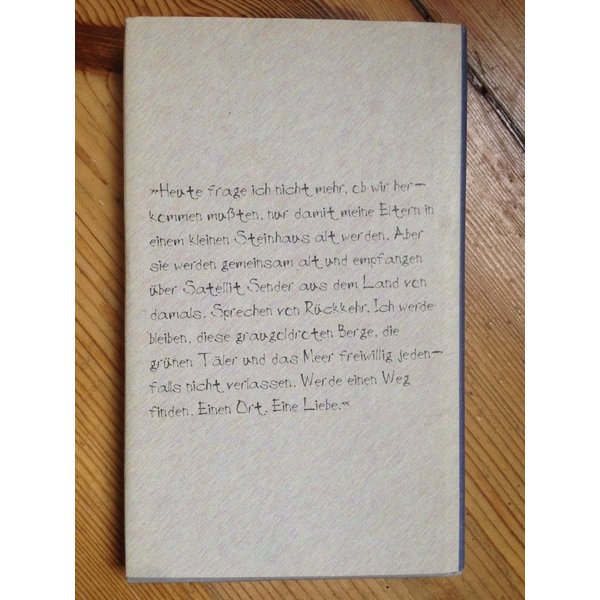 »Heute frage ich nicht mehr, ob wir her-
kommen mußten, nur damit meine Eltern in
einem kleinen Steinhaus alt werden. Aber
sie werden gemeinsam alt und empfangen
über Satellit Sender aus dem Land von
damals. Sprechen von Rückkehr. Ich werde
bleiben, diese graugoldroten Berge, die
grünen Täler und das Meer freiwillig jeden-
falls nicht verlassen. Werde einen Weg
finden. Einen Ort. Eine Liebe.«